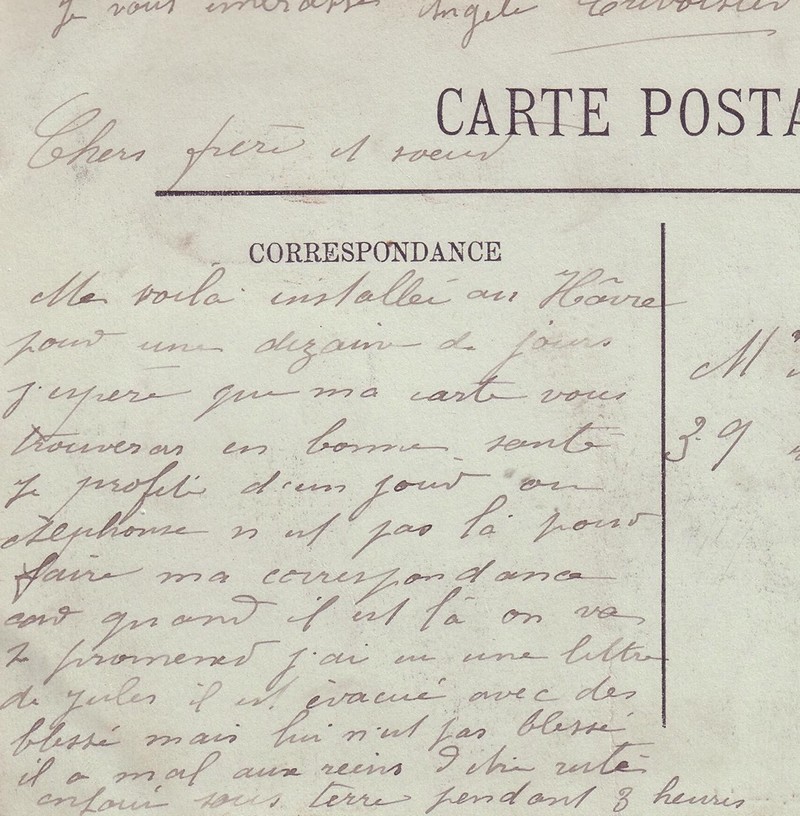 Je vous embrasse Angèle
CARTE POSTA
Chers frère et soeur
CORRESPONDANCE
Me voilà installée au Hâvre
pour une dizaine de jours
j'espère que ma carte vous
M
trouveras en bonne santé
39
je profite d'un jour ou
Alphonse n est pas là pour
faire ma correspondance
car quand il est là on va
se promener j'ai eu une lettre
de Jules il est évacué avec des
blessé mais lui n'est pas blessé
il a mal aux reins d'être resté
enfoui sous terre pendant 3 heures